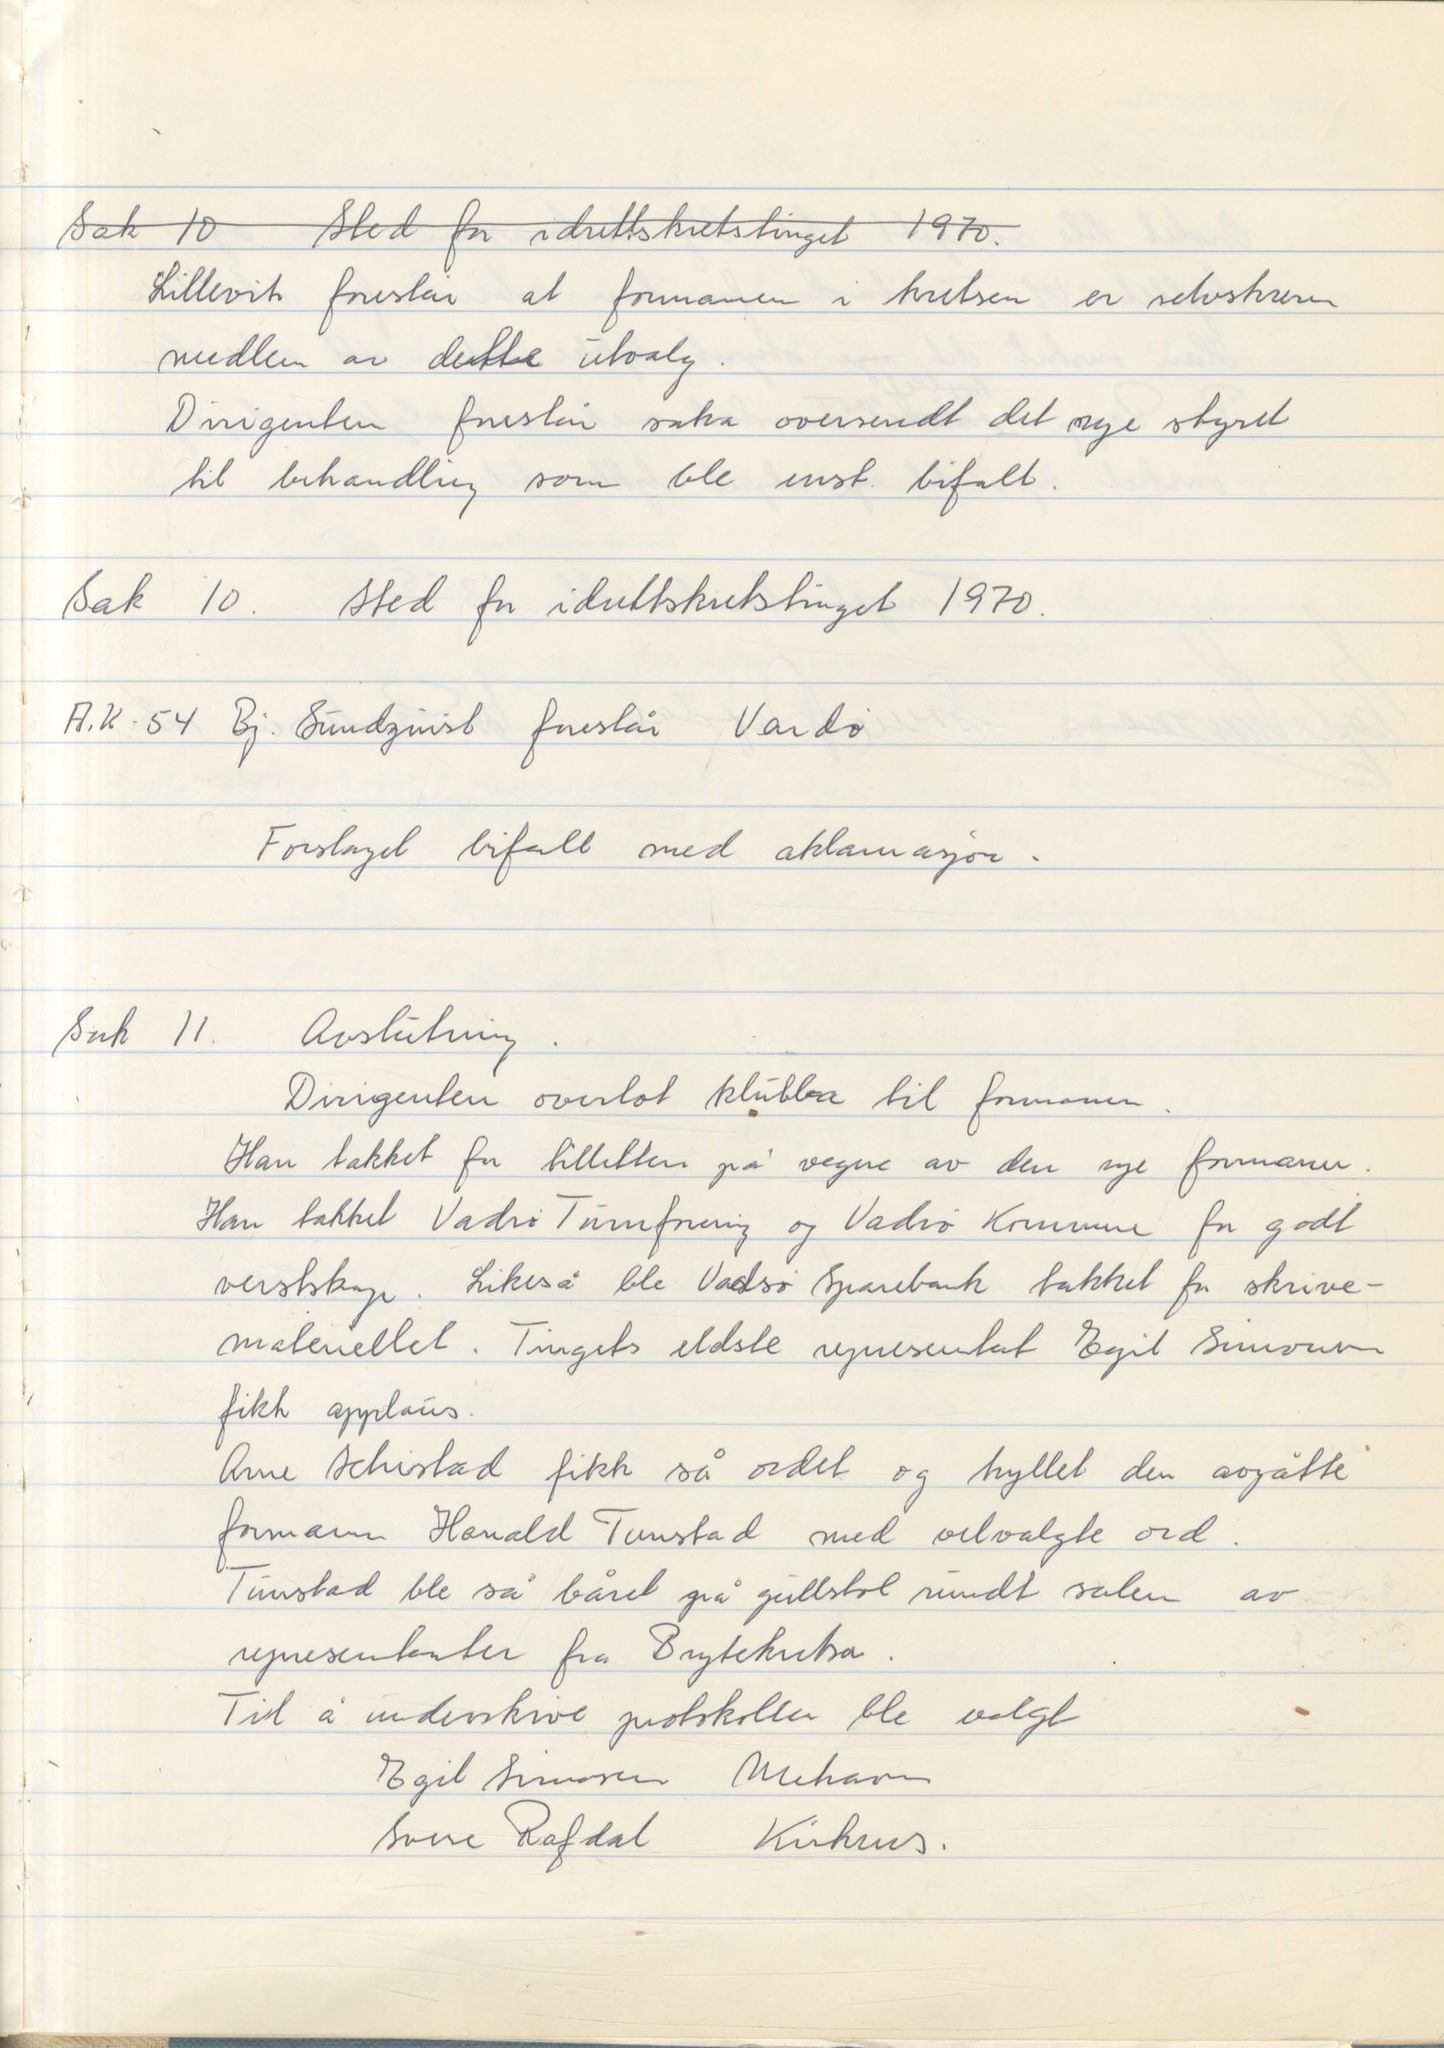 Sak 10 Sted for idrettskretstinget 1970.
Lillevik foreslår at formannen i kretsen er selvskreven
medlem av dette utvalg.
Dirigenten foreslår saka oversendt det nye styret
til behandling som ble enst. bifalt.
Sak 10. Sted for idrettskretstinget 1970.
A.K-54 Bj. Sundqvist foreslår Vardø
Forslaget bifalt med aklamasjon.
Sak 11. Avslutning.
Dirigenten overlot klubba til formannen.
Han takket for tilliten på vegne av den nye formannen.
Han takket Vadsø Turnforening og Vadsø Kommune for godt
vertskap. Likeså ble Vadsø Sparebank takket for skrive-
materiellet. Tingets eldste representant Egil Simonsen
fikk applaus.
Arne Schistad fikk så ordet og hyllet den avgåtte
formann Harald Tunstad med velvalgte ord.
Tunstad ble så båret på gullstol rundt salen av
representanter fra Brytekretsa.
Til å underskrive protokollen ble valgt
Egil Simonsen Mehamn
Svere Rafdal Kirknes.